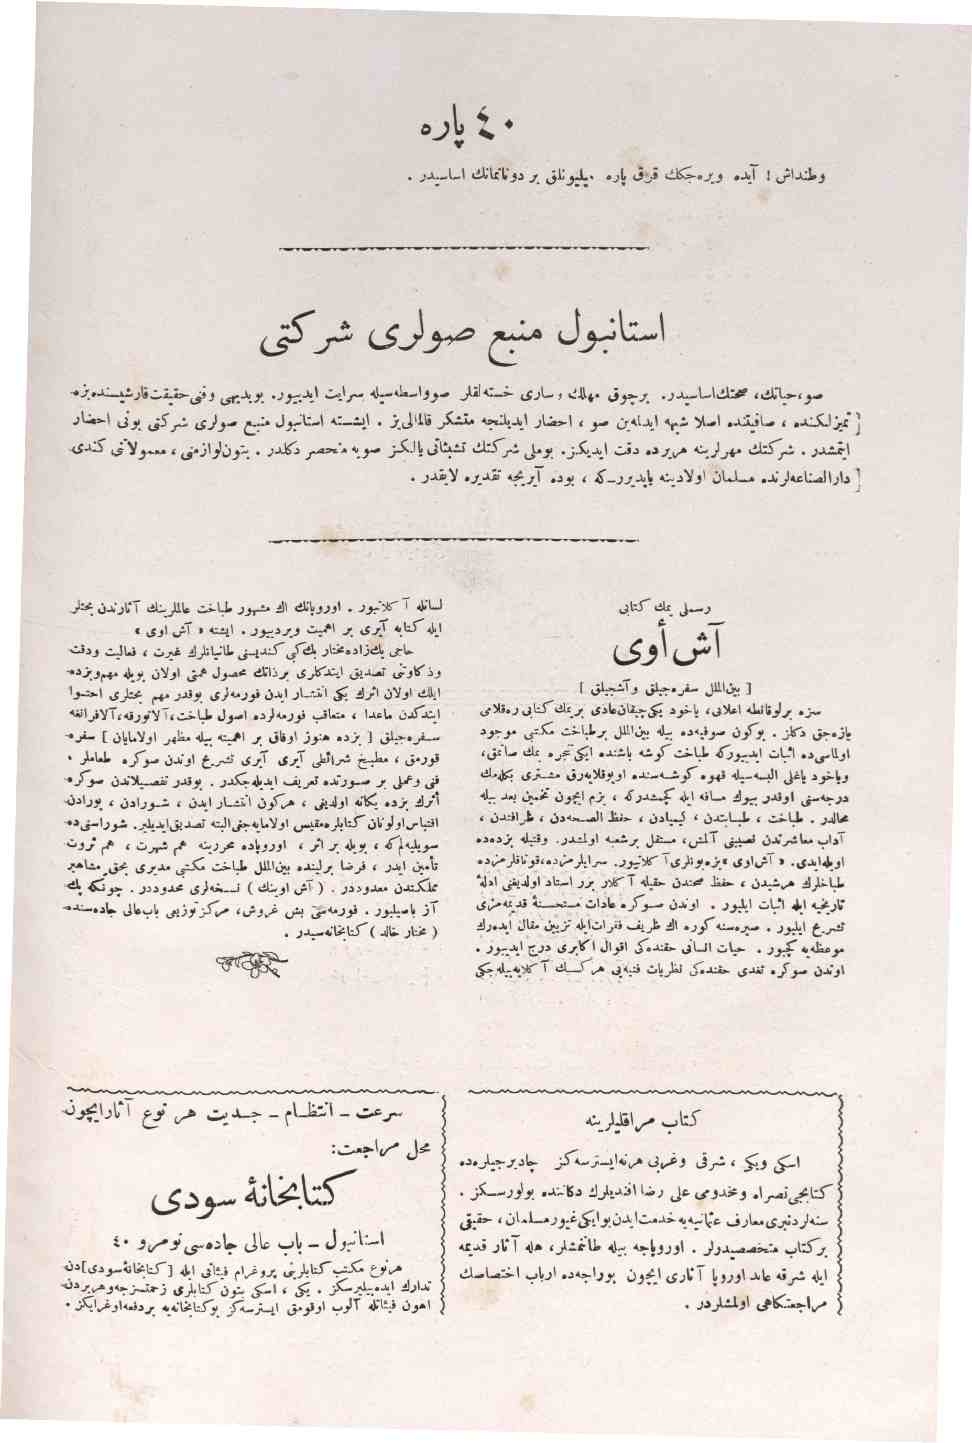 ٤٠ پاره
وطنداش ! آیده ویره‌جكك قرق پاره ملیونلق بر دونانمانك اساسیدر .
استانبول منبع صولری شركتی
صو،حیاتك، صحتك‌اساسیدر. برچوق مهلك ، ساری خسته‌لقلر صوواسطه‌سیله سرایت ایدییور. بوبدیهی وفنی‌حقیقت‌قارشیسنده‌بزه
تمیزلكنده ، صافیتنده اصلا شبهه ایدلمه‌ین صو ، احضار ایدیلنجه متشكر قالمالی‌یز . ایشته استانبول منبع صولری شركتی بونی احضار
ایتمشدر . شركتك مهرلرینه هریرده دقت ایدیكز. بوملی شركتك تشبثاتی یالكز صویه منحصر دكلدر. بتون‌لوازمنی ، معمولاتنی كندی
دارالصناعه‌لرنده مسلمان اولادینه یاپدیرر_كه ، بوده آیریجه تقدیره لایقدر .
رسملی یمك كتابی
آش أوی
[ بین‌الملل سفره‌جیلق وآشجیلق ]
سزه برلوقانطه اعلانی، یاخود یكی‌چیقان‌عادی بریمك كتابی ره‌قلامی
یازه‌جق دكلز . بوكون صوفیه‌ده بیله بین‌الملل برطباخت مكتبی موجود
اولماسی‌ده اثبات ایدییوركه طباخت كوشه باشنده ایكی تنجره یمك صاتمق،
ویاخود یاغلی البسه‌سیله قهوه كوشه‌سنده اویوقلایه‌رق مشتری بكله‌مك
درجه‌سنی اوقدر بیوك مسافه ایله كچمشدركه ، بزم ایچون تخمین بعد بیله
محالدر . طباخت ، طبابتدن ، كیمیادن ، حفظ الصحه‌دن ، ظرافتدن ،
آداب معاشرتدن نصیبنی آلمش، مستقل برشعبه اولمشدر. وقتیله بزده‌ده
اویله‌ایدی. « آش‌اوی »بزه‌بونلری‌آ كلاتیور. سرایلرمزده،قوناقلرمزده
طباخلرك هرشیدن ، حفظ صحتدن حقیله آ كلار برر استاد اولدیغنی ادلهٔ
تاریخیه ایله اثبات ایلیور . اوندن صوكره عادات مستحسنهٔ قدیمه‌مزی
تشریح ایلیور . صیره‌سنه كوره اك ظریف فقرات‌ایله تزیین مقال ایده‌رك
موعظه‌یه كچیور . حیات انسانی حقنده‌كی اقوال اكابری درج ایدییور .
اوندن صوكره تغدی حقنده‌كی نظریات فنیه‌یی هركسك آ كلایه‌بیله‌جكی
لسانله آ كلاتیور . اوروپانك اك مشهور طباخت عالملرینك آثارندن بحثلر
ایله كتابه آیری بر اهمیت ویردییور . ایشته « آش اوی »
حاجی بك‌زاده‌مختار بك‌كبی كندیسنی طانیانلرك غیرت ، فعالیت ودقت
وذكاوتنی تصدیق ایتدكلری برذاتك محصول همتی اولان بویله مهم‌وبزده
ایلك اولان اثرك یكی انتشار ایدن فورمه‌لری بوقدر مهم بحثلری احتوا
ایتدكدن ماعدا ، متعاقب فورمه‌لرده اصول طباخت،آلاتورقه،آلافرانغه
سفره‌جیلق [ بزده هنوز اوفاق بر اهمیته بیله مظهر اولامایان ] سفره
قورمق ، مطبخ شرائطی آیری آیری تشریح اوندن صوكره طعاملر .
فنی وعملی بر صورتده تعریف ایدیله‌جكدر . بوقدر تفصیلاتدن صوكره
أثرك بزده یكانه اولدیغی ، هركون انتشار ایدن ، شورادن ، بورادن
اقتباس‌اولونان كتابلره‌مقیس اولامایه‌جغی‌البته تصدیق‌ایدیلیر. شوراسنی‌ده
سویلیه‌لم‌كه ، بویله بر اثر ، اوروپاده محررینه هم شهرت ، هم ثروت
تأمین ایدر ، فرضا برلینده بین‌الملل طباخت مكتبی مدیری بحق مشاهیر
مملكتدن معدوددر . ( آش اوینك ) نسخه‌لری محدوددر . چونكه پك
آز باصیلیور . فورمه‌سی بش غروش، مركز توزیعی باب‌عالی جاده‌سنده
( مختار خالد ) كتابخانه‌سیدر .
كتاب مراقلیلرینه
اسكی ویكی ، شرقی وغربی هرنه‌ایسترسه‌كز چادیرجیلرده
كتابجی‌نصراه ومخدومی علی رضا افندیلرك دكاننده بولورسكز .
سنه‌لردنبری‌معارف عثمانیه‌یه‌خدمت‌ایدن‌بوایكی‌غیورمسلمان، حقیقی
بركتاب متخصصیدرلر . اوروپاجه بیله طانتمشلر، هله آثار قدیمه
ایله شرقه عائد اوروپا آثاری ایچون بوراجه‌ده ارباب اختصاصك
مراجعتكاهی اولمشلردر .
سرعت _ انتظام _ جدیت هر نوع آثارایچون
محل مراجعت:
كتابخانهٔ سودی
استانبول _ باب عالی جاده‌سی نومرو ٤٠
هرنوع مكتب كتابلرینی پروغرام فیئاتی ایله [كتابخانهٔ‌سودی]دن
تدارك ایده‌بیلیرسكز . یكی ، اسكی بتون كتابلری زحمتسزجه‌وهریردن
اهون فیئاتله آلوب اوقومق ایسترسه‌كز بوكتابخانه‌یه بردفعه‌اوغرایكز .